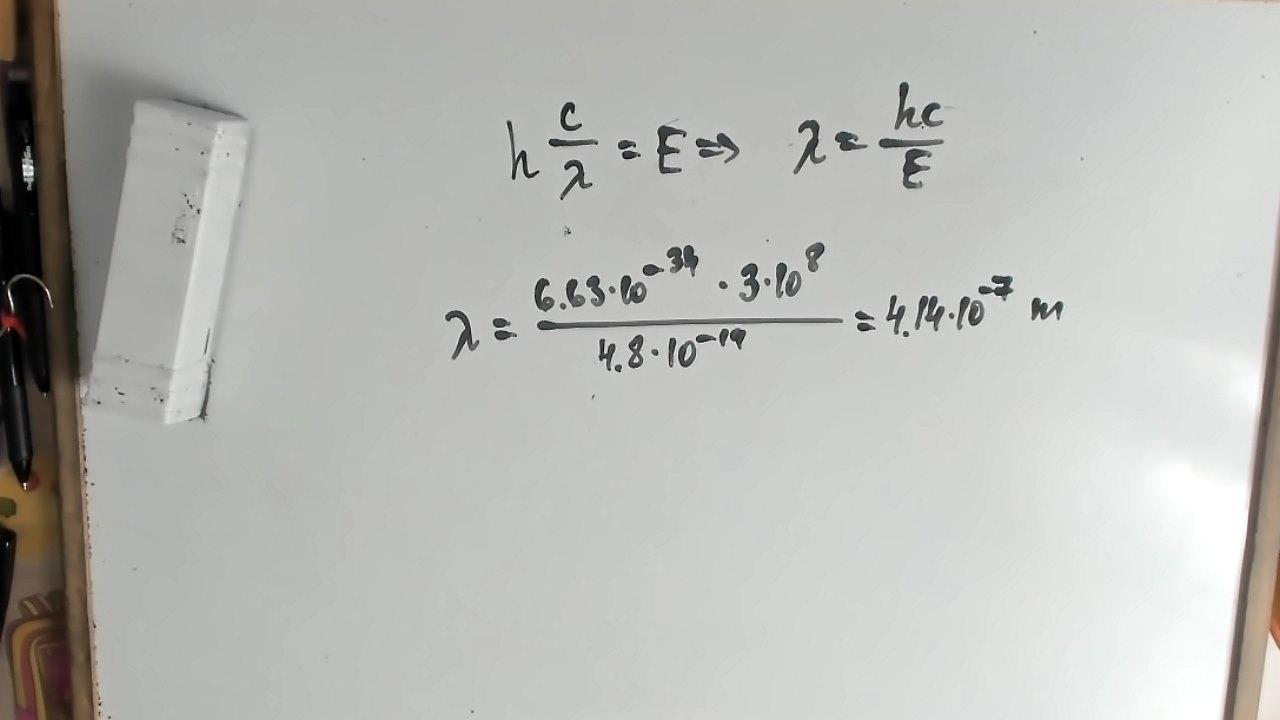 h c/λ = E ⇒ λ = hc/E
λ = 6.63·10^-34 · 3·10^8 / 4.8·10^-19 = 4.14·10^-7 m